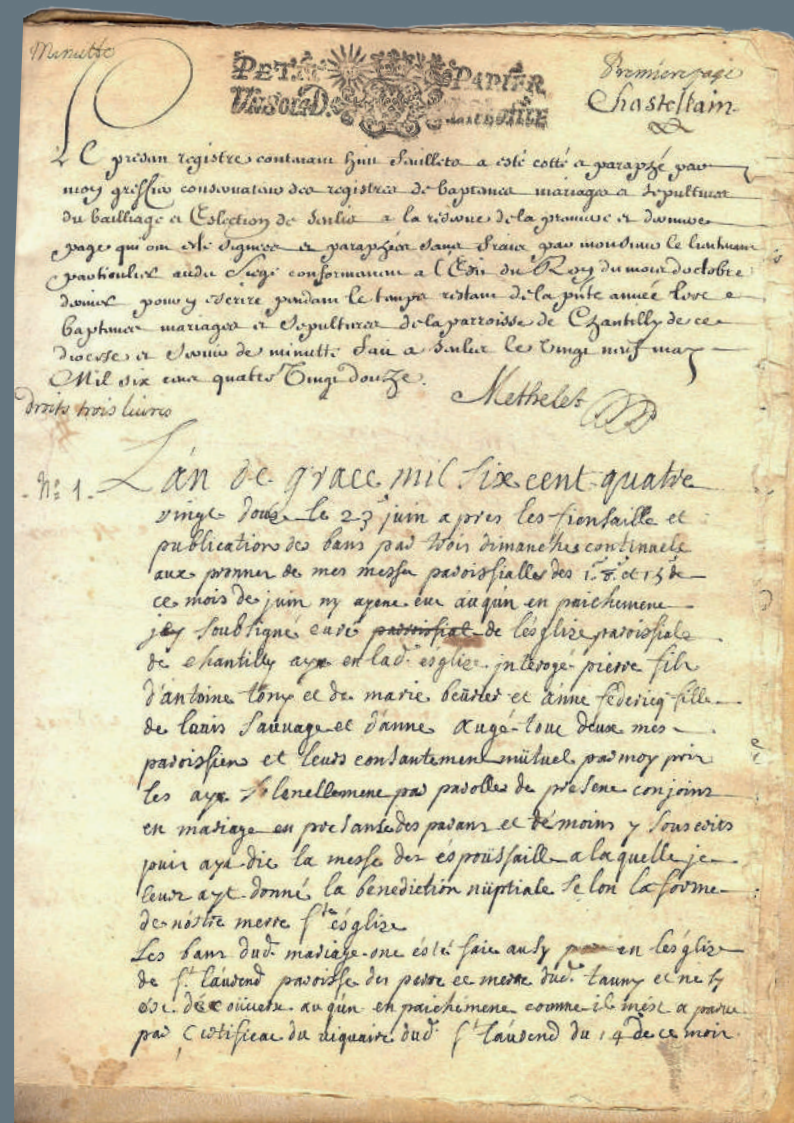 Minutte
PETIT PAPIER
UN SOL D.
Premiere page
Chastelain
LE presan registre contenant huit feuillets a esté cotté et paraphé par
moy greffier conservateur des registres de baptemes mariages et sepultures
du bailliage et Eslection de Senlis a la reserve de la premiere et derniere
page qui ont esté signees et paraphées sans fraix par monsieur le lieutenant
particulier audit siege conformement a l'Edit du Roy du mois doctobre
dernier pour y escrire pendant le temps restant de la pnte année les
baptemes mariages et sepultures de la parroisse de Chantilly de ce
diocesse et servir de minutte fait a Senlis le vingt neuf may
Mil six cens quatre vingt douze.
Methelet
droits trois livres
N° 1. L'an de grace mil six cent quatre
vingt douze le 23e juin apres les fiensaille et
publication des bans par trois dimanches continuels
aux pronner de mes messe paroissialles des 1r 8e et 15e de
ce mois de juin ny ayent eue auqún en paichemene
jey soubsigné curé paroissial de lésglize paroissiale
de chantilly aye en lad. ésglize jnterogé pierre fils
d'antoine tony et de marie beurier et anne fédericq fille
de louis sauvage et d'anne augé tout deux mes
paroissiens et leurs consantement mütuel par moy pris
les aye solenellemene par parolles de presene conjoins
en mariage en presanse des parans et témoins y souscrits
puis aye dit la messe des éspoüssaille a laquelle je
leurs ayt donné la benediction nüptiale selon la forme
de nóstre merre ste ésglize
Les bans dud. mariage one ésté faie ausy en lesglize
de st laurend paroisse des perre et merre dud. tauny et ne sy
est décoüvert auqún en paichemene comme il mést a parue
par certificat du viquaire dud. st laurend du 14e de ce mois